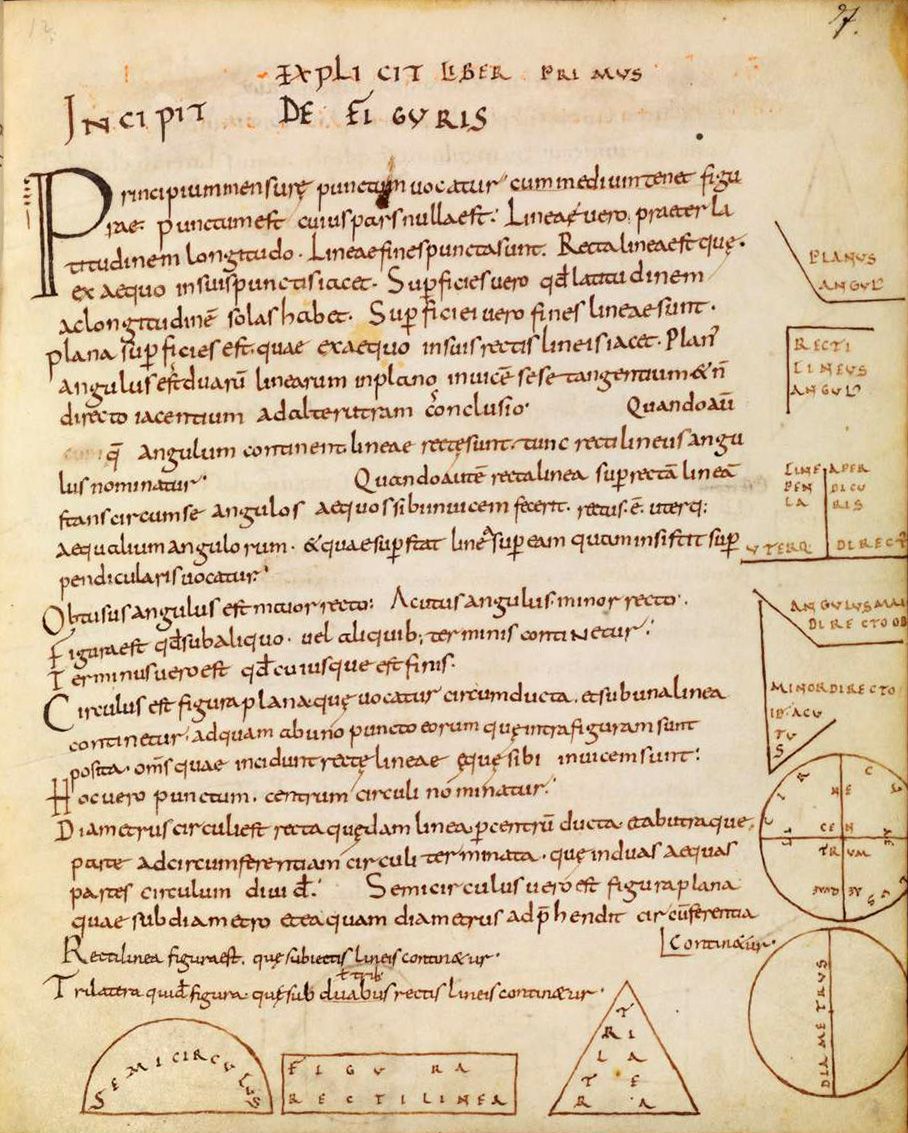 EXPLICIT LIBER PRIMVS
INCIPIT DE FIGVRIS
Principium mensurę punctum uocatur cum medium tenet figu
rae. punctum est cuius pars nulla est. Lineae uero praeter la
titudinem longitudo. Lineae fines puncta sunt. Recta linea est quę
ex aequo in suis punctis iacet. Supficies uero qđ latitudinem
ac longitudinē solas habet. Supficiei uero fines lineae sunt.
plana supficies est quae ex aequo in suis rectis lineis iacet. Plan'
angulus est duarū linearum in plano inuicē sese tangentium & ñ
directo iacentium ad alterutram conclusio. Quando aū
q̄ Angulum continent lineae rectę sunt. tunc rectilineus angu
lus nominatur. Quando autē recta linea sup rectā lineā
stans circum se angulos aequos sibi inuicem fecerit. rectus. ē. uterq;
aequalium angulorum. & quae supstat lineę sup eam qu insistit sup
pendicularis uocatur.
Obtusus angulus est maior recto. Acutus angulus minor recto.
Figura est qđ sub aliquo. uel aliquib; terminis continetur.
Terminus uero est qđ cuiusque est finis.
Circulus est figura plana quę uocatur circumducta. et sub una linea
continetur. ad quam ab uno puncto eorum quę intra figuram sunt
posita. om̄s quae incidunt rectę lineae ęquę sibi inuicem sunt.
Hoc uero punctum. centrum circuli nominatur.
Diametrus circuli est recta quędam linea p centrū ducta. et ab utraque
parte ad circumferentiam circuli terminata. quę in duas aequas
partes circulum diuiđ. Semicirculus uero est figura plana
quae sub diametro et ea quam diametrus adp̄hendit circūferentia
contin&ur.
Rectilinea figura est. quę sub rectis lineis contin&ur.
ł trib;
Trilatera quiđ figura. quę sub duabus rectis lineis contin&ur.
PLANVS
ANGVL'
RECTI
LINEVS
ANGVL'
LINEA PER
PEN DICV
LA RIS
VTERQ DIRECT
ANGVLVS MAI
DI RECTO OB
MINOR DI RECTO
ID ACV
TV
S
CEN
TRVM
DIAMETRVS
SEMICIRCVLVS
FIGVRA
RECTILINEA
TRILATERA